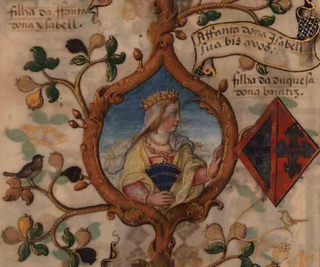 filha da Iffanta
dona ysabell.
A Iffanta dona ysabell
sua bis avoo.
filha da duquesa
dona briatiz.